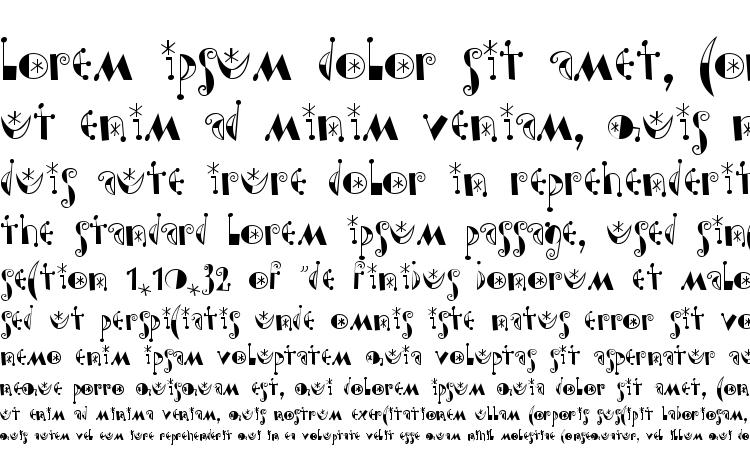 Lorem ipsum dolor sit amet, con
ut enim ad minim veniam, quis n
duis aute irure dolor in reprehenderit
the standard Lorem Ipsum passage, used sinc
section 1.10.32 of "de finibus bonorum et malo
sed ut perspiciatis unde omnis iste natus error sit vo
nemo enim ipsam voluptatem quia voluptas sit aspernatur a
neque porro quisquam est, qui dolorem ipsum quia dolor sit amet, con
ut enim ad minima veniam, quis nostrum exercitationem ullam corporis suscipit laboriosam,
quis autem vel eum iure reprehenderit qui in ea voluptate velit esse quam nihil molestiae consequatur, vel illum